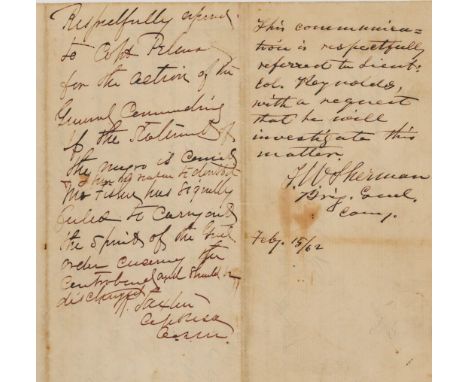 Respectfully
to Capt
for the action of the
General Commanding
if the Statement of
the negro is correct
Mr Fisher has signally
failed to carry out
the spirit of the
order concerning the
contrabands and should be
discharged
R. Saxton
Capt
This communica=
tion is respectfully
referred to Lieut:
Col. Reynolds,
with a request
that he will
investigate this
matter.
T. W. Sherman
Brig. Genl.
Comg.
Feby. 15/62